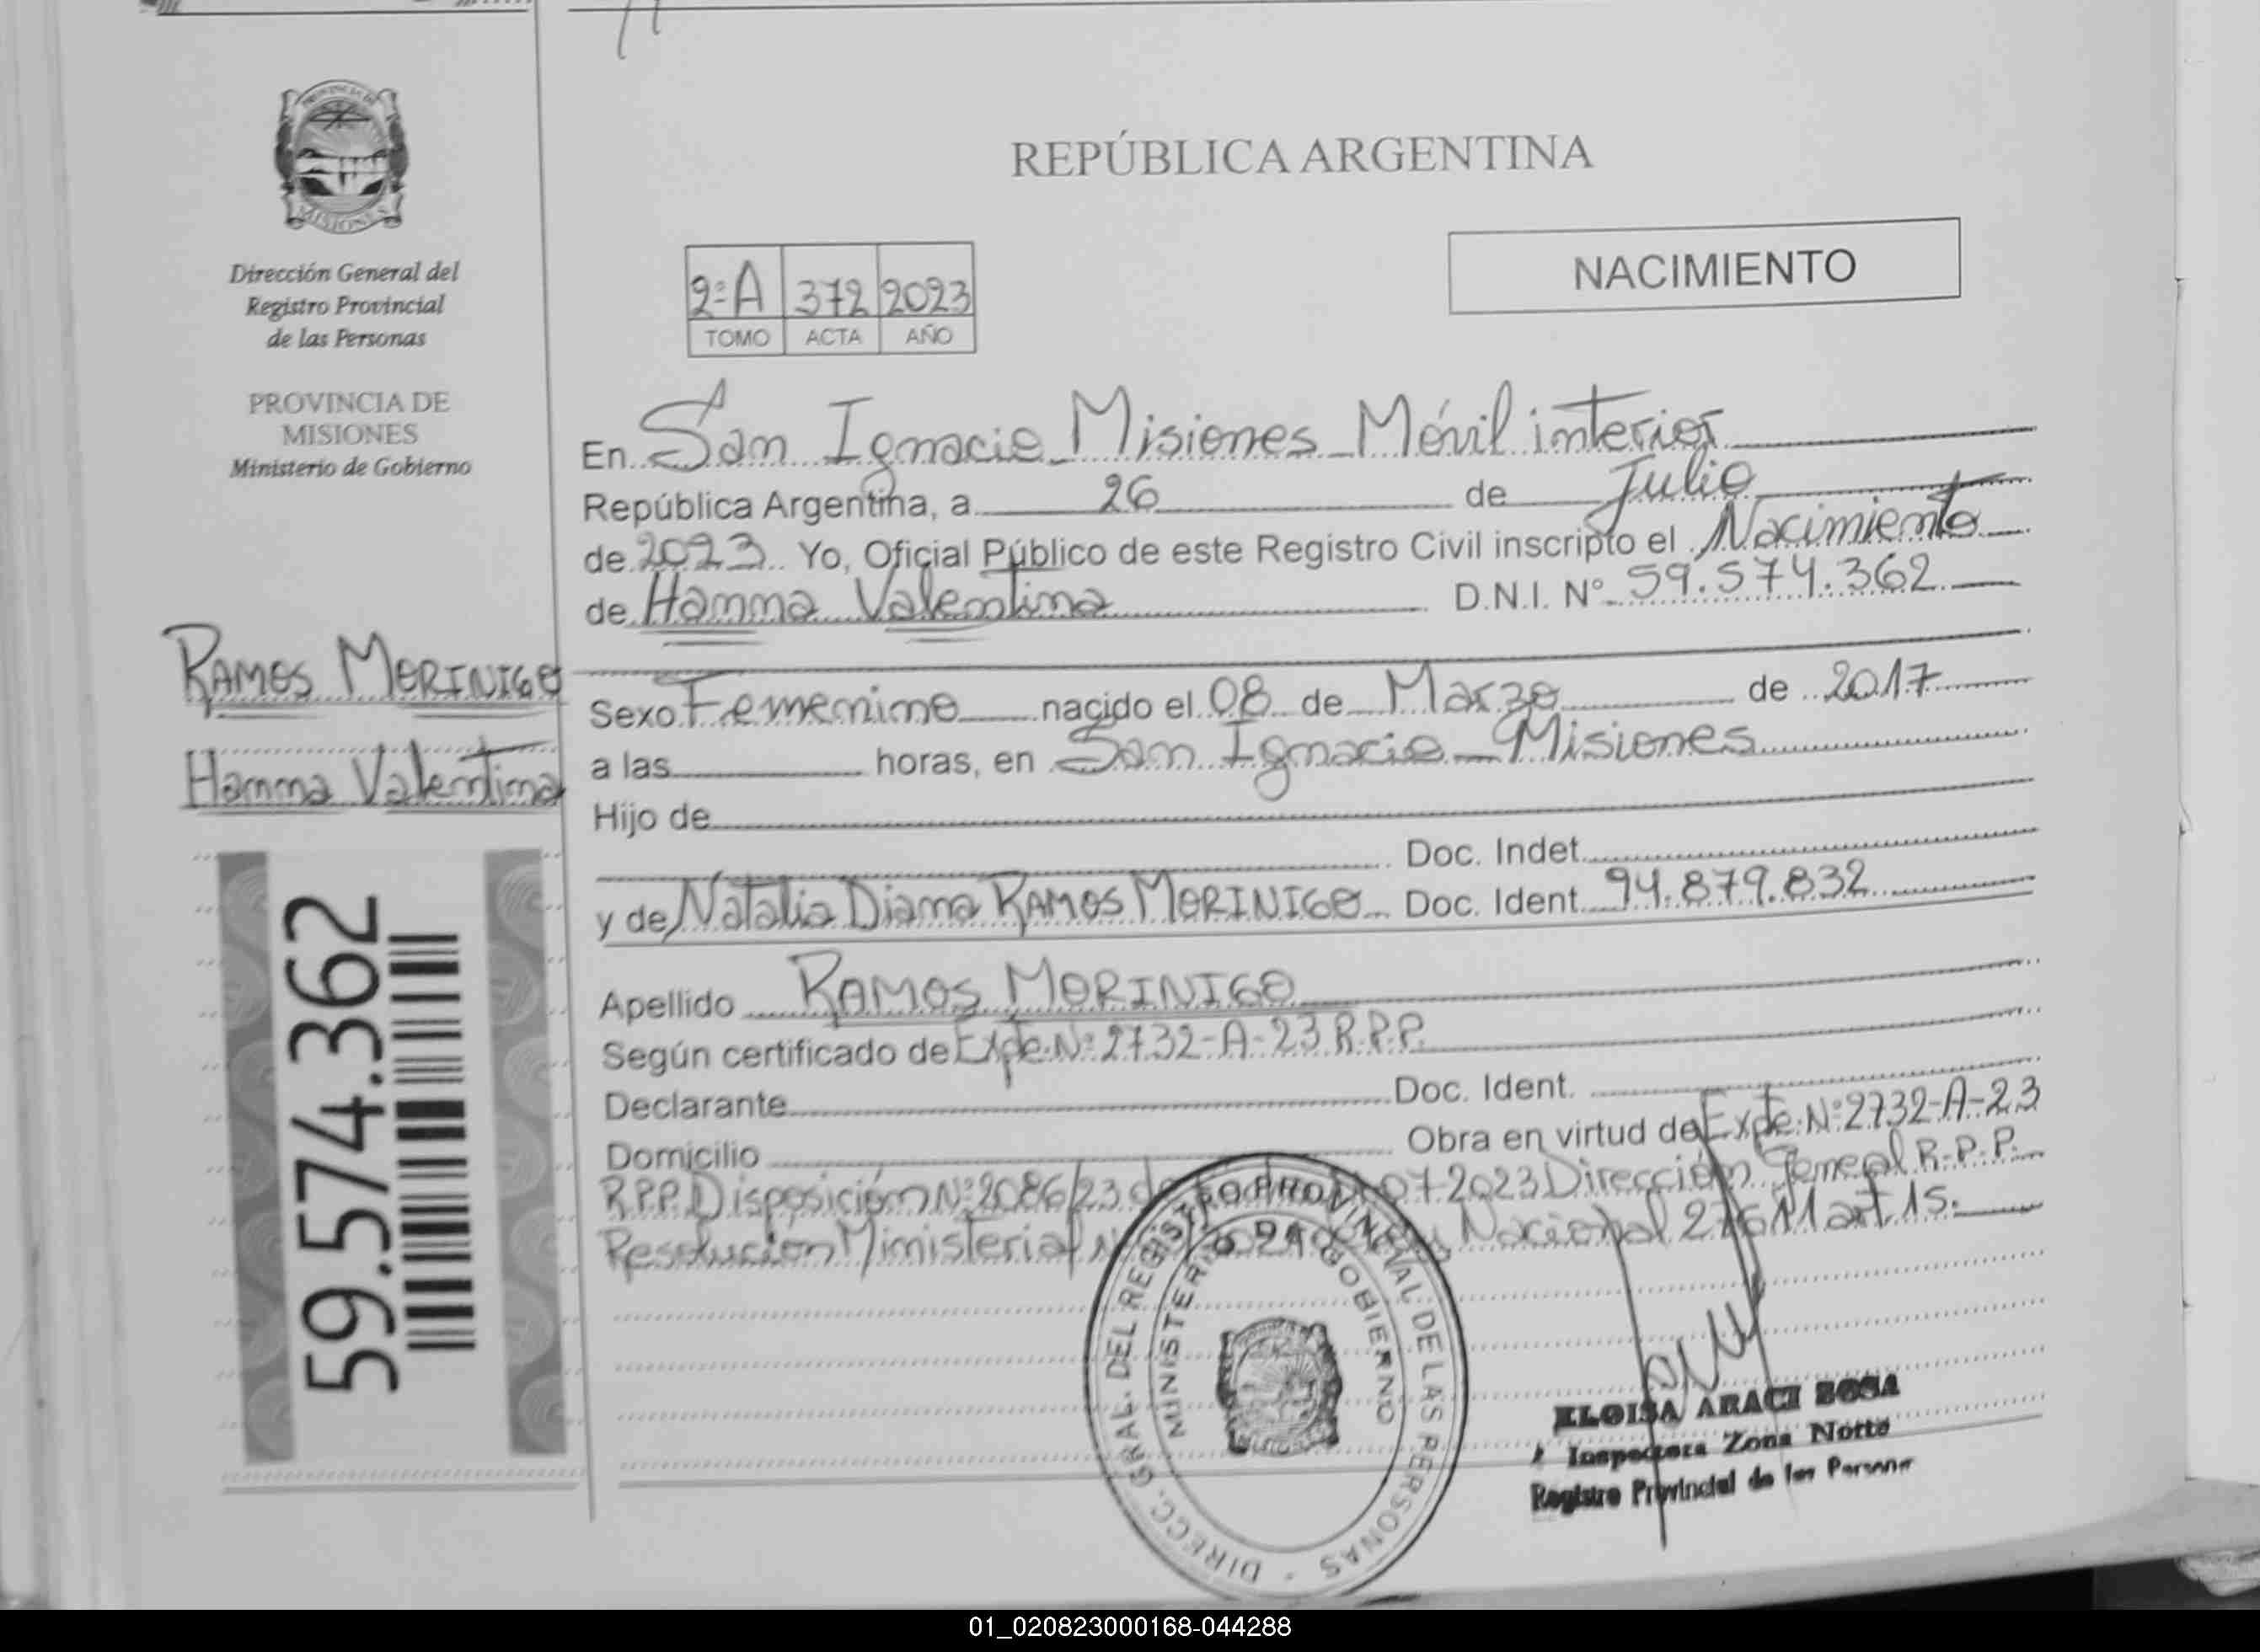 REPÚBLICA ARGENTINA
PROVINCIA DE
MISIONES
Dirección General del
Registro Provincial
de las Personas
PROVINCIA DE
MISIONES
Ministerio de Gobierno
RAMOS MORINIGO
Hanna Valentina
59.574.362
NACIMIENTO
2ºA 372 2023
TOMO ACTA AÑO
En San Ignacio Misiones Móvil interior
República Argentina, a 26 de Julio
de 2023 Yo, Oficial Público de este Registro Civil inscripto el Nacimiento
de Hanna Valentina D.N.I. Nº 59.574.362
Sexo Femenino nacido el 08 de Marzo de 2017
a las horas, en San Ignacio - Misiones
Hijo de
Doc. Indet.
y de Natalia Diana RAMOS MORINIGO Doc. Ident. 94.879.832
Apellido RAMOS MORINIGO
Según certificado de Expte. Nº 2732-A-23 R.P.P.
Declarante Doc. Ident.
Domicilio Obra en virtud de Expte. Nº 2732-A-23
R.P.P. Disposición Nº 2086/23 07-2023 Dirección General R.P.P.
Resolución Ministerial Nacional 27611 art. 15.
DIRECC. GRAL. DEL REGISTRO PROVINCIAL DE LAS PERSONAS
MINISTERIO DE GOBIERNO
ELOISA ARACI SOSA
Inspectora Zona Norte
Registro Provincial de las Persona
01_020823000168-044288